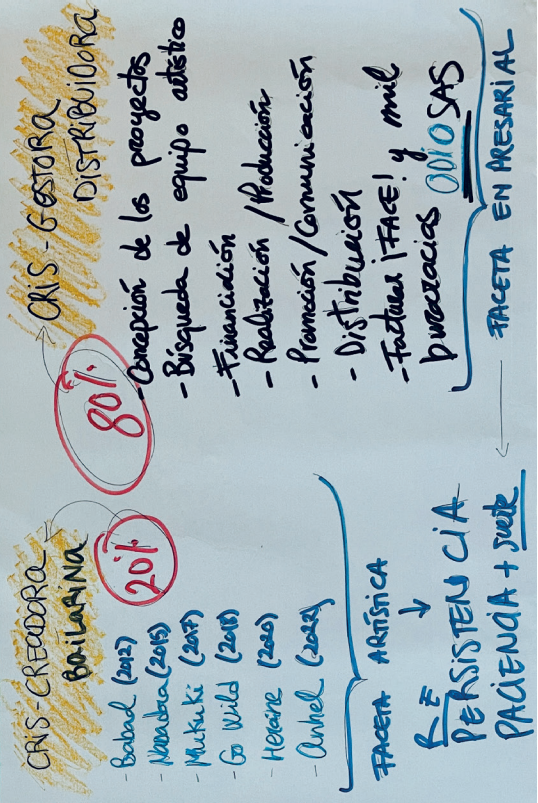 CRIS-CREADORA
BAILARINA
20%
- Babad (2012)
(2015)
- Mukuki (2017)
- Go Wild (2018)
- Heroine (2020)
- Anhel
FACETA ARTÍSTICA
RE
PERSISTENCIA
PACIENCIA + suerte
CRIS-GESTORA
DISTRIBUIDORA
80%
- Concepción de los proyectos
- Búsqueda de equipo artístico
- Financiación
- Realización / Producción
- Promoción / Comunicación
- Distribución
- Facturas ¡FACE! y mil
burocracias ODIOSAS
FACETA EMPRESARIAL